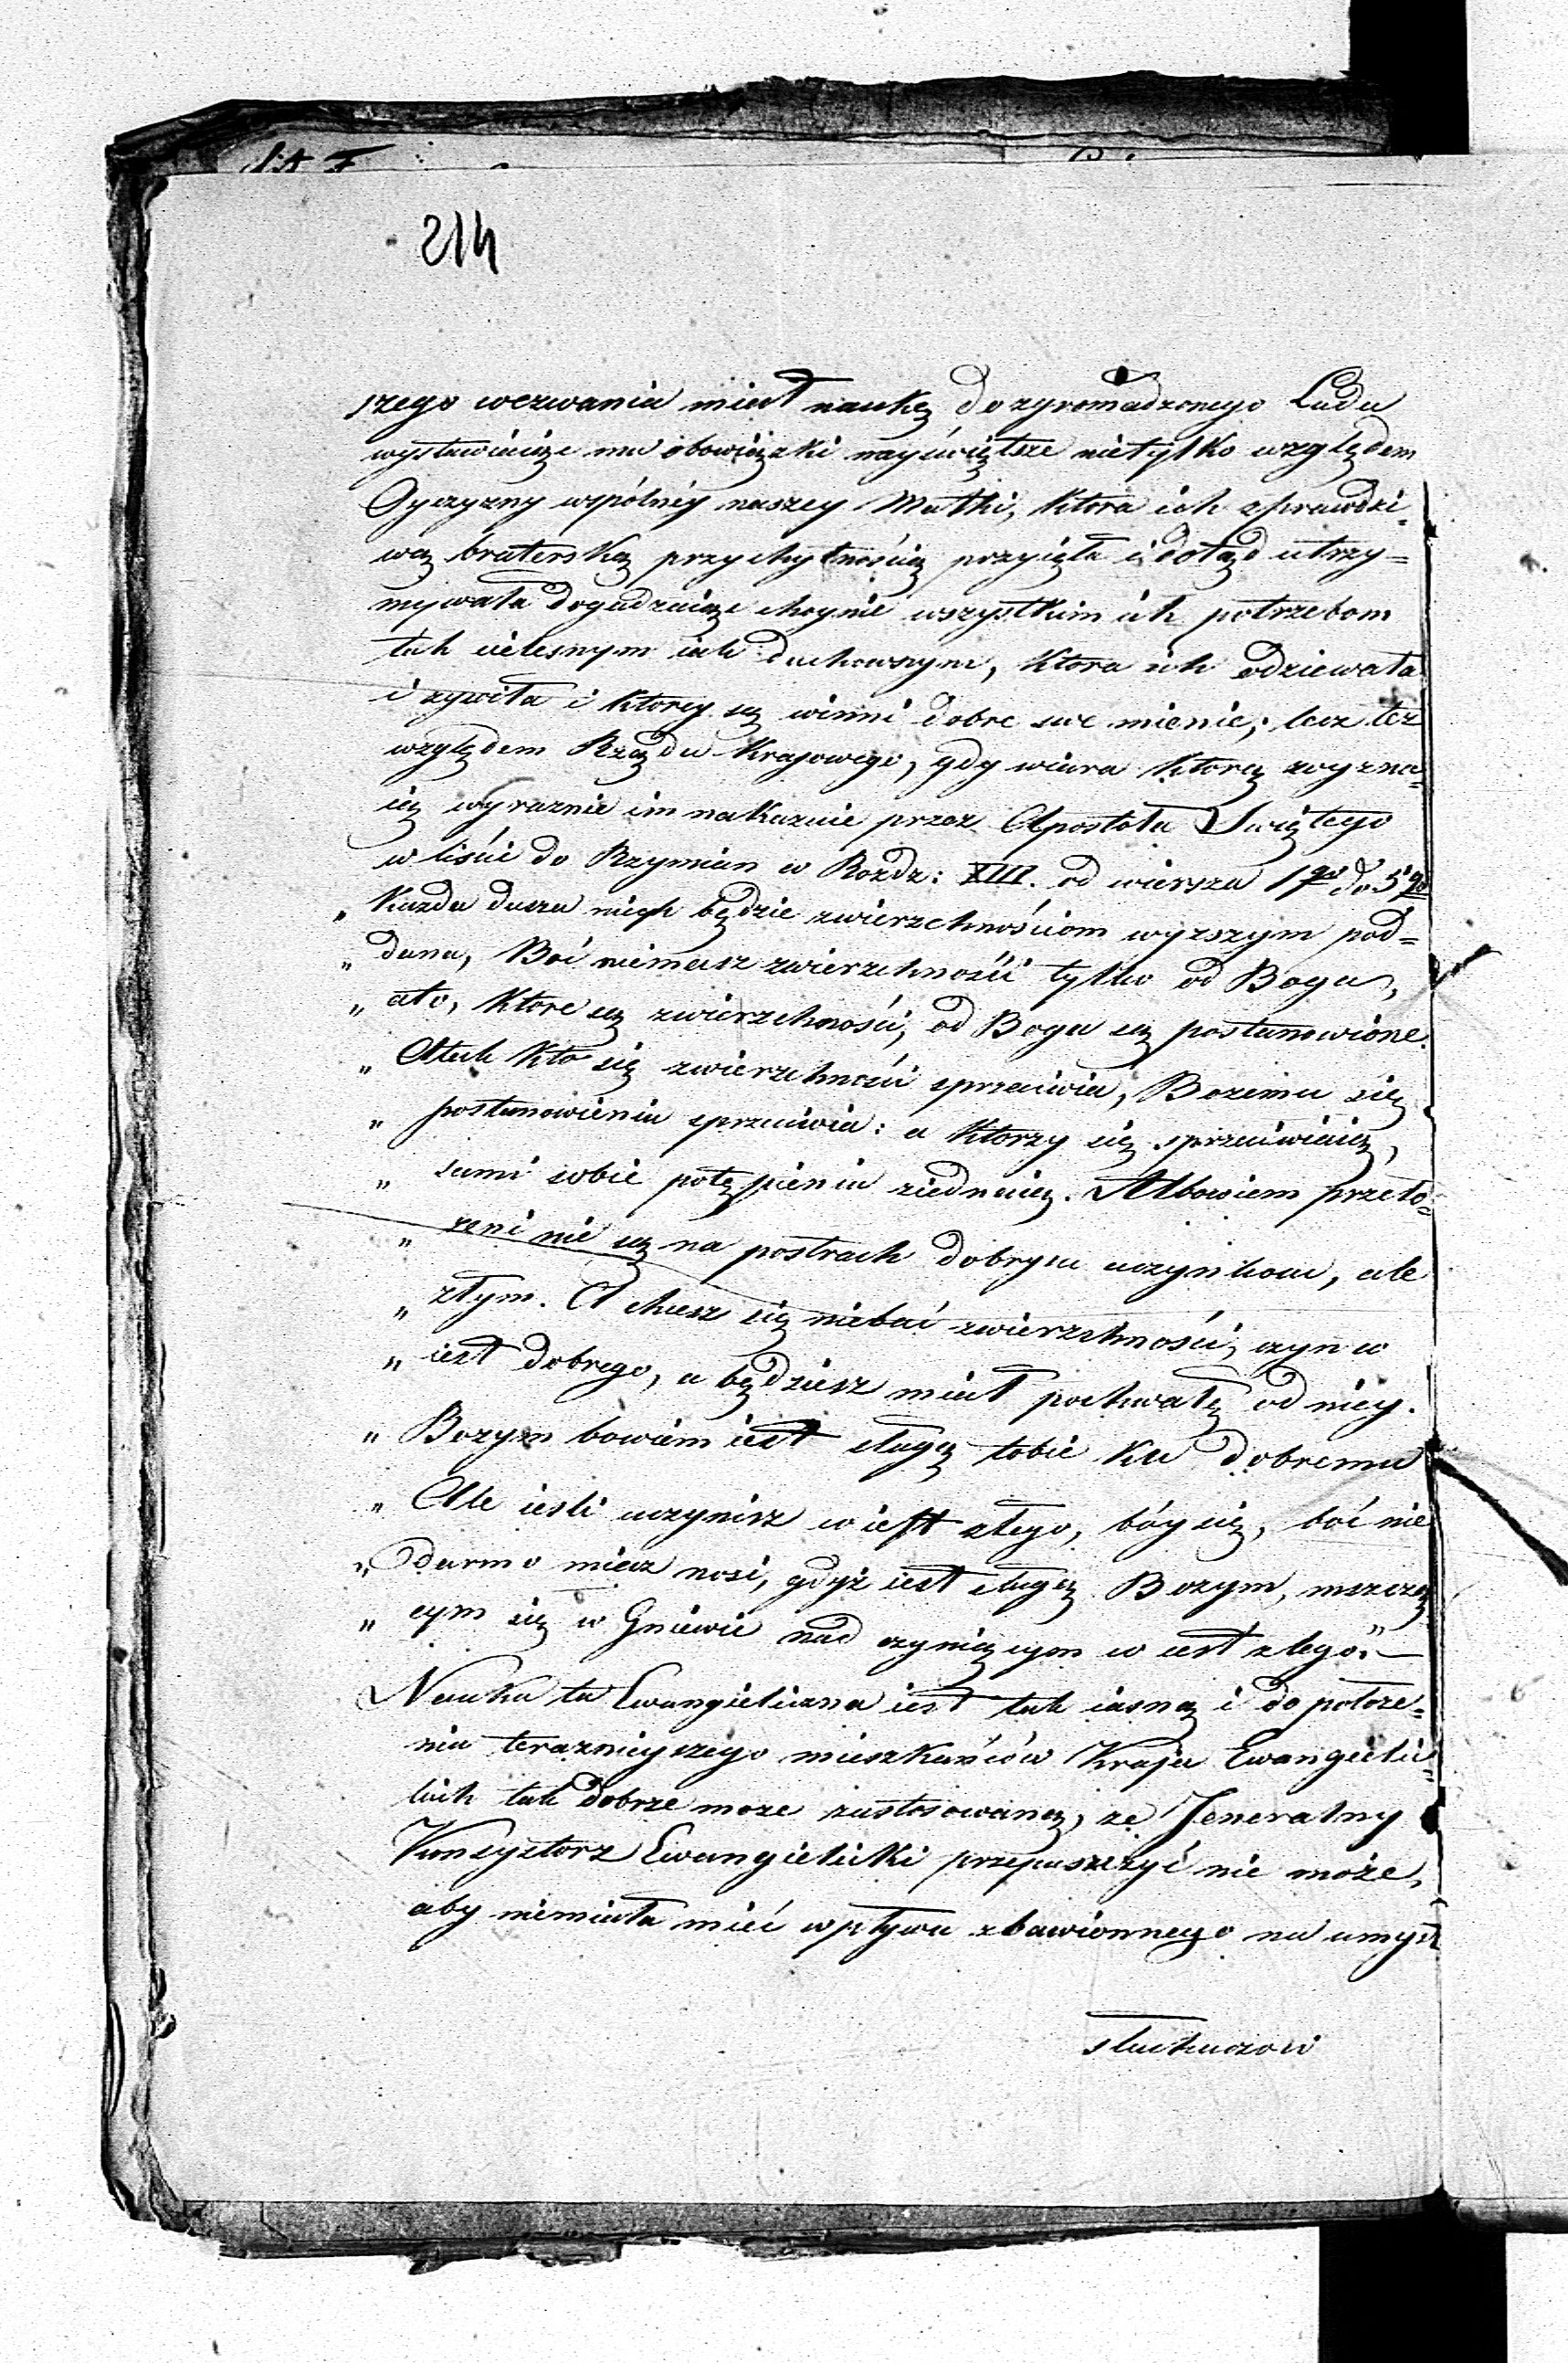 214
szego wezwania miał naukę do zgromadzonego Ludu
wystawiaiąc mu obowiązki nayświętsze nietylko względem
Oyczyzny wspólnéy naszey Matki, ktora ich z prawdzi-
wą braterską przychylnością przyięła i dotąd utrzy=
mywała dogadzaiąc choynie wszystkim ich potrzebom
tak cielesnym iak duchownym, ktora ich odziewała
i żywiła i ktorey są winni dobre swe mienie; lecz też
względem Rządu Krajowego, gdy wiara ktorą wyzna-
ią wyraznie im nakazuie przez Apostoła Swiętego
w liście do Rzymian w Rozdz: XIII. od wiersza 1go do 5go
„ Kazda dusza niech będzie zwierzchnościom wyzszym pod=
„ dana, Boć niemasz zwierzchności tylko od Boga,
„ a te, ktore są zwierzchności, od Boga są postanowione.
„ A tak kto się zwierzchności sprzeciwia, Bozemu się
„ postanowieniu sprzeciwia: a ktorzy się sprzeciwiaią,
„ sami sobie potępienie ziednaią. Albowiem przeło=
„ zeni nie są na postrach dobrym uczynkom, ale
„ złym. A chcesz się niebać zwierzchności, czyn co
„ iest dobrego, a będziesz miał pochwałę od niéy.
„ Bozym bowiem iest sługą tobie ku dobremu
„ Ale iesli uczynisz co iest złego, bóy się, boć nie
„ darmo miecz nosi, gdyż iest sługą Bozym, mszczą
„ cym się w Gniewie nad czyniącym co iest złego." —
Nauka ta Ewangieliczna iest tak iasną i do położe=
nia teraznieyszego mieszkańców Kraju Ewangelic=
kich tak dobrze może zastosowaną, że Jeneralny
Konsystorz Ewangielicki przepuszczyć nie może,
aby niemiała mieć wpływu zbawionnego na umysł
słuchaczow